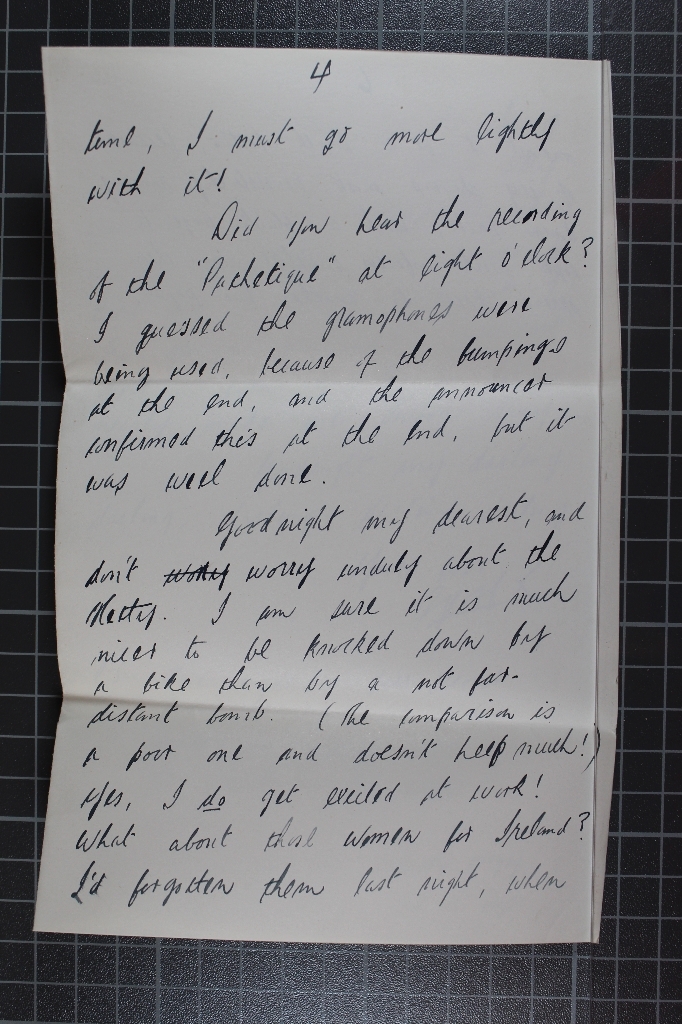 4
time, I must go more lightly
with it!
Did you hear the recording
of the "Pathetique" at eight o'clock?
I guessed the gramophones were
being used, because of the bumpings
at the end, and the announcer
confirmed this at the end, but it
was well done.
Goodnight my dearest, and
don't worry worry unduly about the
I am sure it is much
nicer to be knocked down by
a bike than by a not far-
distant bomb. (The comparison is
a poor one and doesn't help much!)
Yes, I do get excited at work!
What about those women for Ireland?
I'd forgotten them last night, when